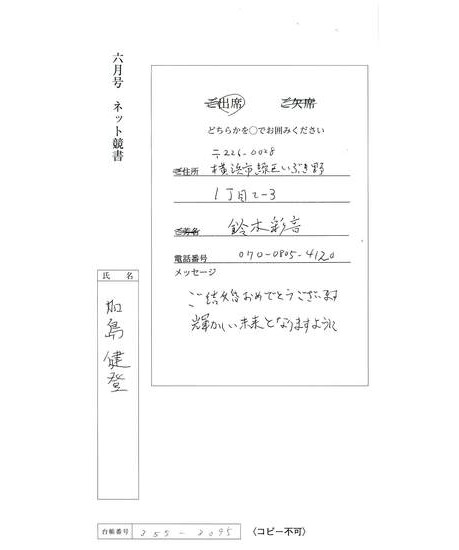 六月号 ネット競書
ご出席 ご欠席
どちらかを〇でお囲みください
〒226-0028
ご住所 横浜市緑区いぶき野
1丁目2-3
ご芳名 鈴木彩音
電話番号 070-0805-4120
メッセージ
ご結婚おめでとうございます
輝かしい未来となりますように
氏 名
加島 健登
台帳番号 255-2095
〈コピー不可〉